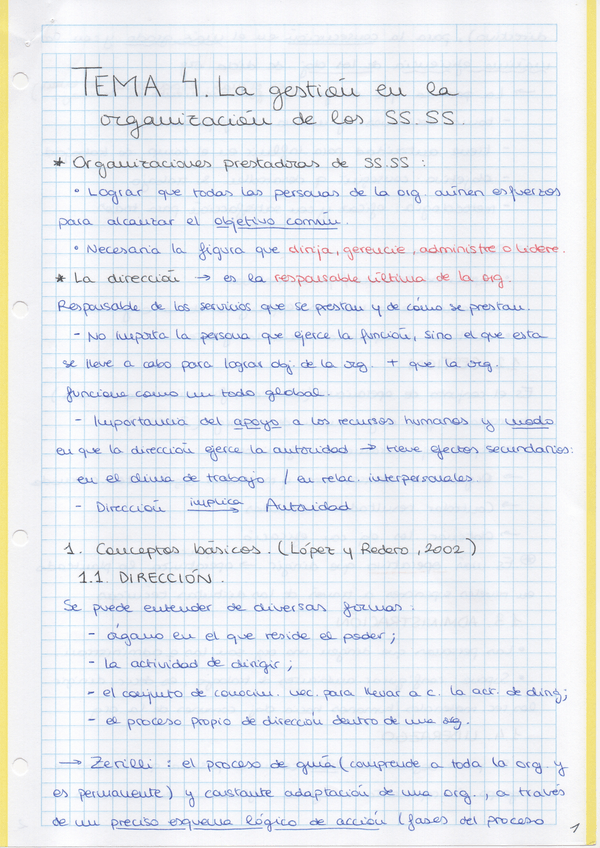 TEMA 4. La gestión en la
organización de los SS.SS.
* Organizaciones prestadoras de SS.SS :
• Lograr que todas las personas de la org. aúnen esfuerzos
para alcanzar el objetivo común.
• Necesaria la figura que dirija, gerencie, administre o lidere.
* La dirección → es la responsable última de la org.
Responsable de los servicios que se prestan y de cómo se prestan.
- No importa la persona que ejerce la función, sino el que esta
se lleve a cabo para lograr obj. de la org. + que la org.
funcione como un todo global.
- Importancia del apoyo a los recursos humanos y modo
en que la dirección ejerce la autoridad → tiene efectos secundarios:
en el clima de trabajo / en relac. interpersonales
- Dirección implica → Autoridad
1. Conceptos básicos. (López y Redero, 2002)
1.1. DIRECCIÓN.
Se puede entender de diversas formas:
- órgano en el que reside el poder;
- la actividad de dirigir;
- el conjunto de conocim. nec. para llevar a c. la act. de dirig;
- el proceso propio de dirección dentro de una org.
→ Zerilli : el proceso de guía (comprende a toda la org. y
es permanente) y constante adaptación de una org., a través
de un preciso esquema lógico de acción (fases del proceso
1